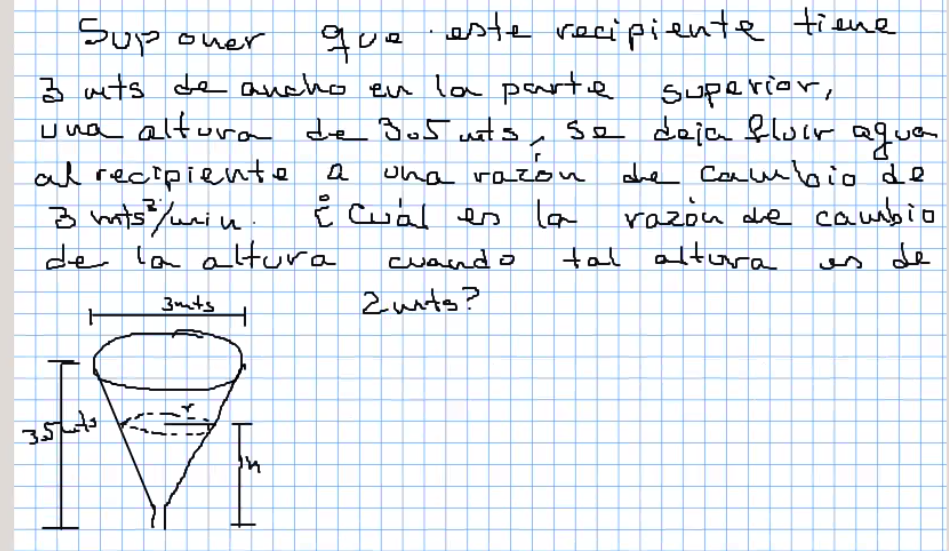 Suponer que este recipiente tiene
3 mts de ancho en la parte superior,
una altura de 3.5 mts, se deja fluir agua
al recipiente a una razón de cambio de
3 mts³/min. ¿Cuál es la razón de cambio
de la altura cuando tal altura es de
2 mts?
3mts
r
3.5 mts
h